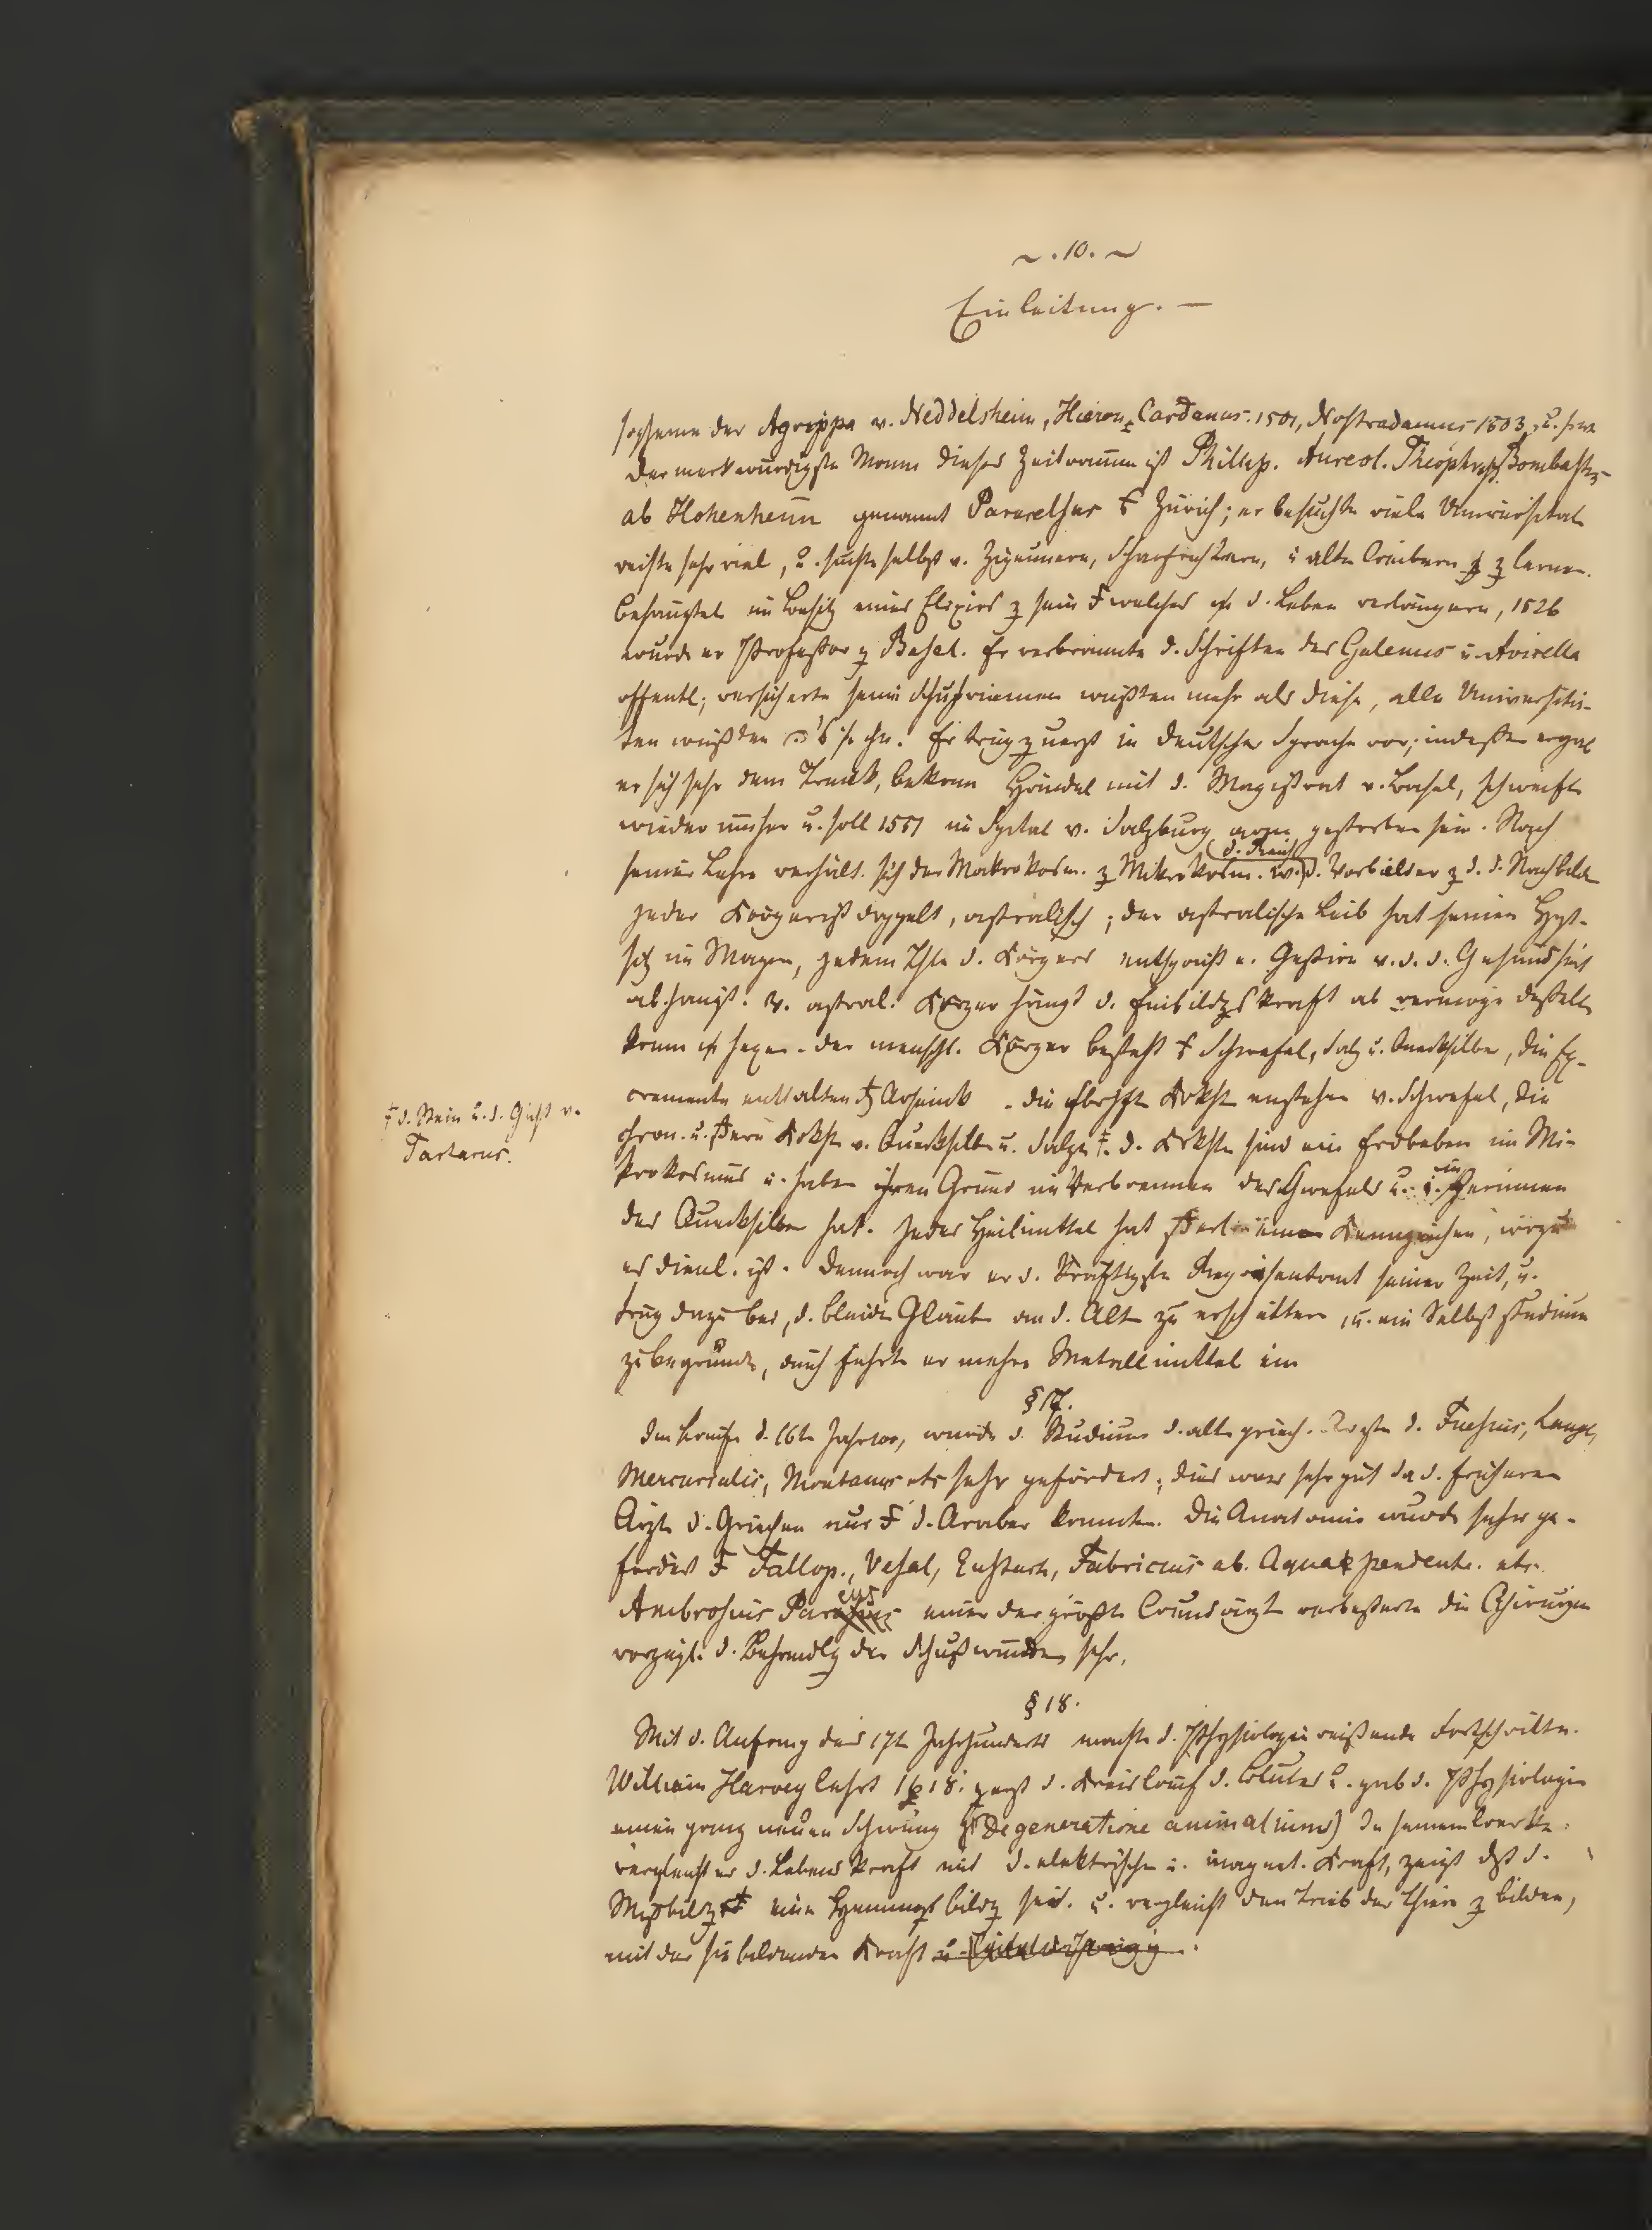 ~ . 10. ~
Einleitung. —
der Agrippa v. Neddelsheim, Hieron. Cardanus. 1501, Nostradamus 1503, u.
Der merkwürdigste Mann dieses Zeitraums ist Phillip. Aureol. Theophrast Bombastus
ab Hohenheim genannt Paracelsus Zürich; er besuchte viele Universitat
reiste sehr viel, u. suchte selbst v. Zigeunern, Scharfrichtern, u alten Weibern z lernen.
behauptet im Besitz eines Elixirs z sein welches d. Leben verlängere, 1526
wurde er Professor z Basel. Er verbrannte d. Schriften des Galenus u. Avicella
offentl; versicherte seine Schuhriemen wüßten mehr als diese, alle Universitä-
ten wüßten Er trug zuerst in deutscher Sprache vor; indeßen ergab
er sich sehr dem Trunk, bekam Händel mit d. Magistrat v. Basel, schweift
wieder umher u. soll 1551 im Spital v. Salzburg arm gestorben sein. Nach
seiner Lehre verhält. sich der Makrokosm. z Mikrokosm. w. d. Vorbilder z d. Nachbild
Jeder Körper ist doppelt, astralisch; der astralische Leib hat seinen Hpt-
sitz im Magen, jedem Thle d. Körpers entspricht e. Gestirn v. d. d. Gesundheit
abhängt. V. astral. Körper hängt d. Einbildgskraft ab vermöge deßelb
kann hexen. der menschl. Körper besteht Schwefel, Salz u. Quecksilber, die Ex-
cremente enthalten Arsenik. die Krkht enstehen v. Schwefel, die
chron. u. Krkht v. Quecksilber u. Salze ‡. d. Krkhtn sind ein Erdbeben im Mi-
‡ d. Stein u. d. Gicht v.
Tartarus.
krokosmus u. haben ihren Grund im Verbrennen des Schwefels u. im Gerinnen
des Quecksilber hat. Jedes Heilmittel hat Kennzeichen, wozu
es dienl. ist. Dennoch war er d. kräftigste Repräsentant seiner Zeit, u.
trug dazu bei, d. blinden Glauben an d. Alten zu erschüttern, u. ein Selbststudium
zu begründen, auch führte er mehre Metallmittel ein
§ 17.
Im Laufe d. 16ten wurde d. Studium d. alten griech. Aerzte d. Fuchsius, Lange,
Mercurialis, Montanus etc sehr gefördert; dies war sehr gut da d. früheren
Ärzte d. Griechen nur d. Araber kannten. Die Anatomie wurde sehr ge-
fördert Fallop., Vesal, Eustach, Fabricius ab. Aquapendente. etc.
Ambrosius Paraeus einer der größten Wundärzte verbeßerte die Chirurgie
vorzügl. d. Behandlg der Schußwunden sehr.
§ 18.
Mit d. Anfang des 17ten Jahrhunderts machte d. Physiologie reißende Fortschritte.
William Harvey lehrt 1618. zuerst d. Kreislauf d. Blutes u. gab d. Physiologie
einen ganz neuen Schwung (De generatione animalium) In seinem Werke
vergleicht er d. Lebenskraft mit d. elektrischen u. magnet. Kraft, zeigt dß d.
Mißbildg eine Hemmungsbildg sei. u. vergleicht den Trieb der Thiere z bilden,
mit der sie bildenden Kraft